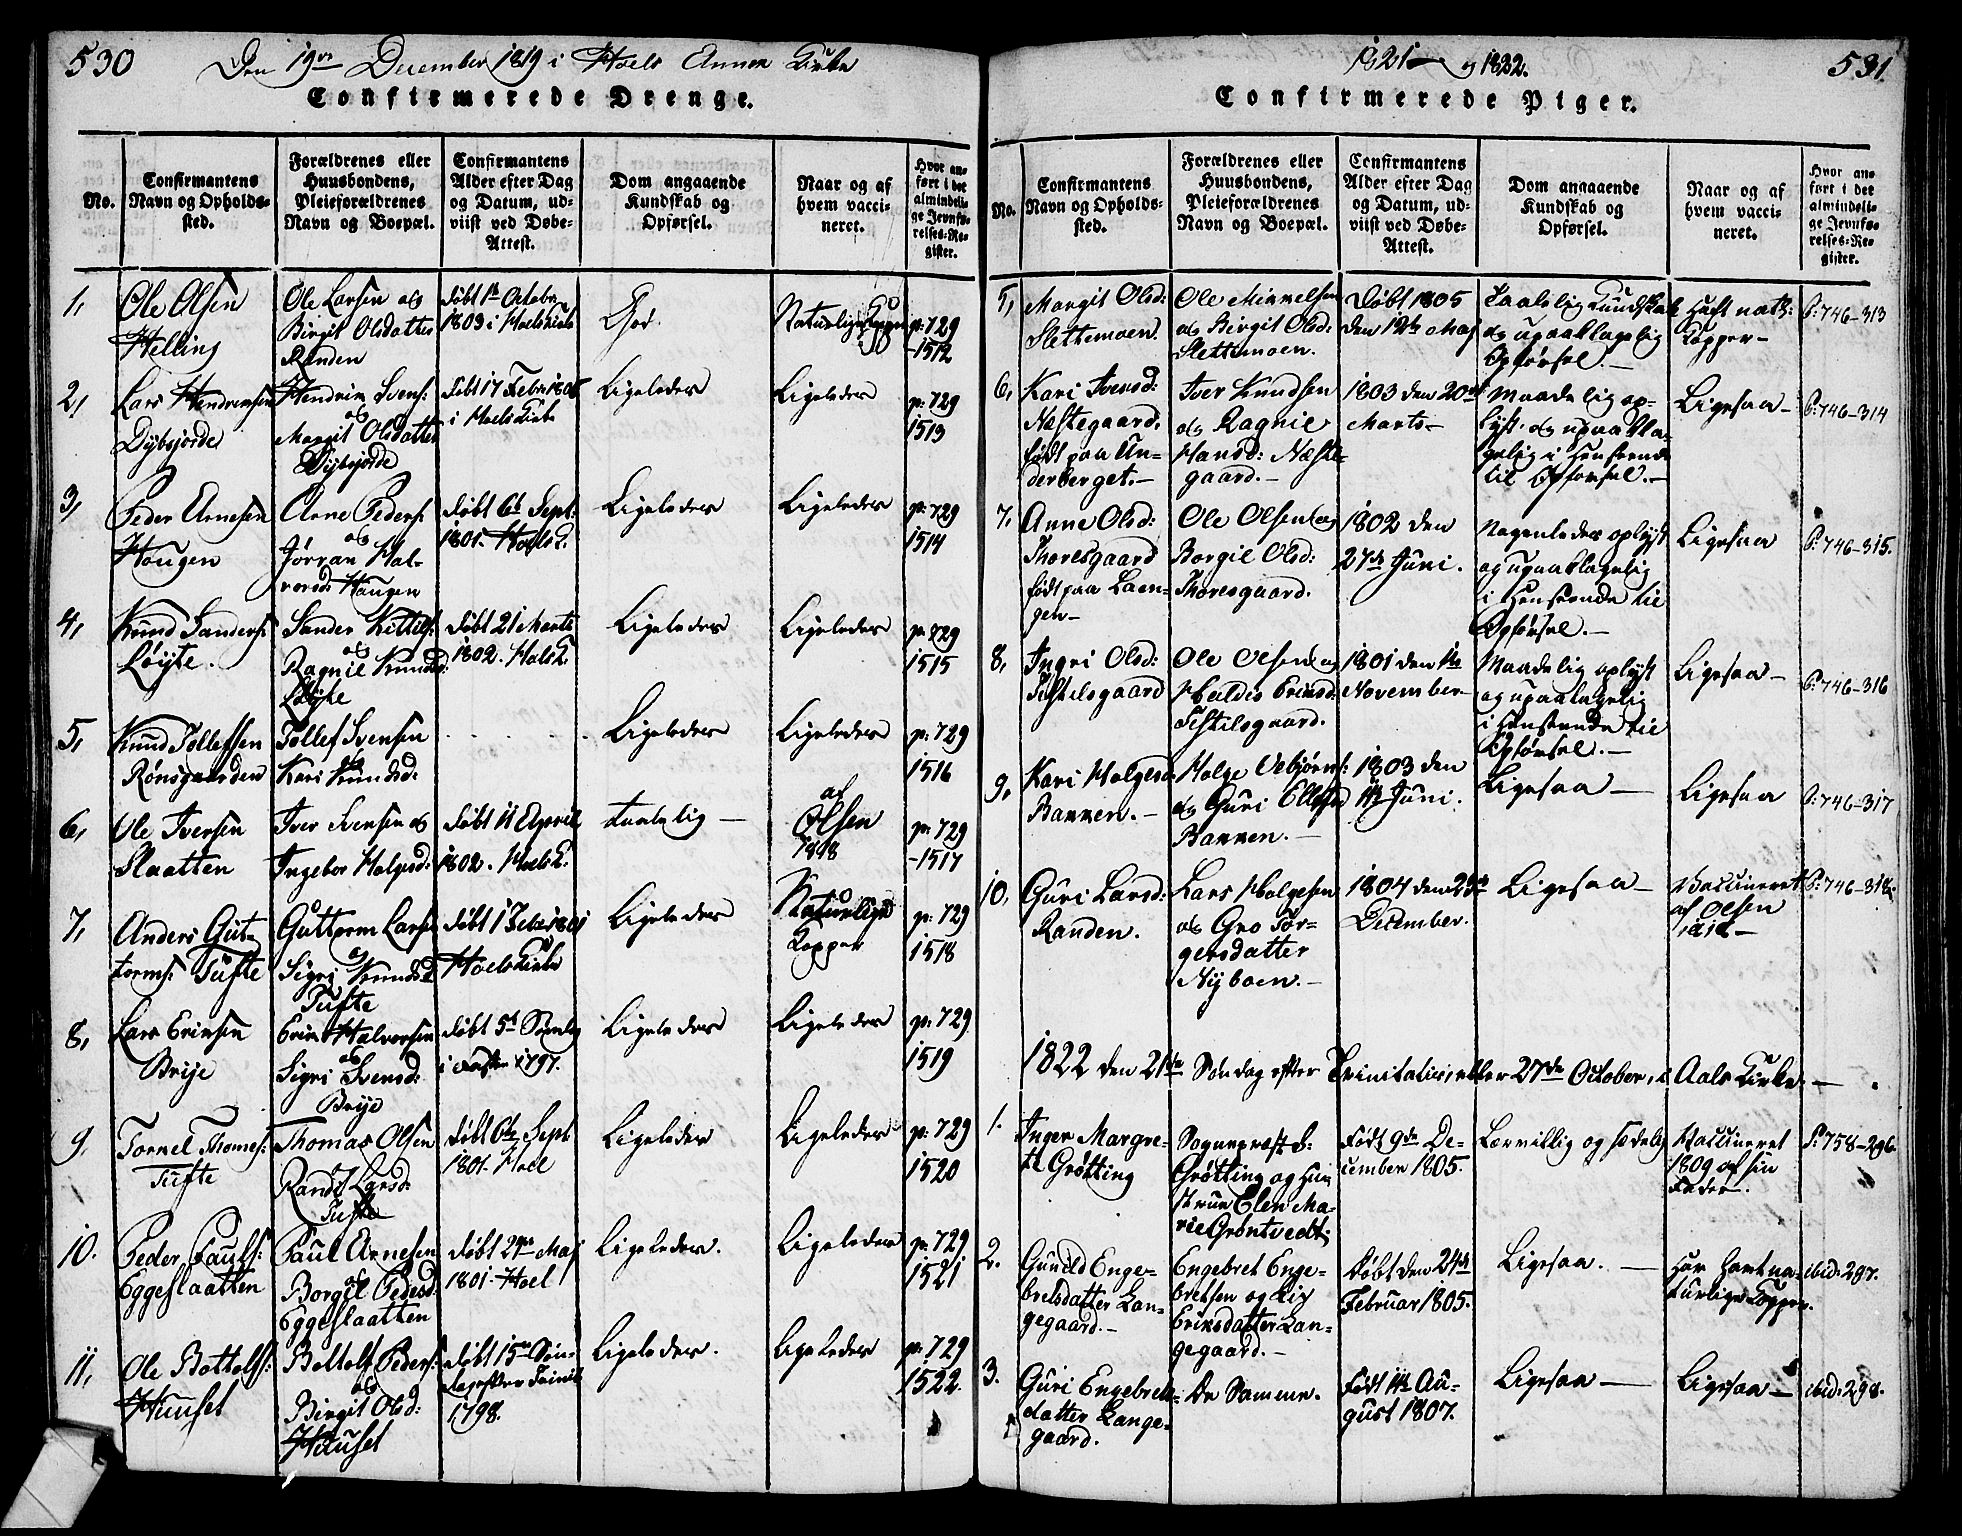 530
Den 19de December 1819 i Hoels Annex Kirke
Confirmerede Drenge.
No.
Confirmantens
Navn og Opholds-
sted.
Forældrenes eller
Huusbondens,
Pleieforældrenes
Navn og Boepæl.
Confirmantens
Alder efter Dag
og Datum, ud-
viist ved Døbe-
Attest.
Dom angaaende
Kundskab og
Opførsel.
Naar og af
hvem vacci-
neret.
Hvor an-
ført i det
almindeli-
ge Jevnfø-
relses-Re-
gister.
1,
Ole Olsen
Helling
Ole Larsen og
Birgit Olsdatter
Randen
døbt 1te Octobr
1803 i Hoels Kirke
God.
Naturlige Kopper
p: 729
-1512
2,
Lars Hendrichsen
Dybsjorde
Hendrich Svens:
og
Margit Olsdatter
Dybsjorde
døbt 17 Febr
i Hoels Kirke
Ligeledes
Ligeledes
p: 729
1513
3,
Peder Arnesen
Hougen
Arne Peders:
og
Jørran Hal-
vorsd: Haugen
døbt 6te Sept:
1801. Hoels K.
Ligeledes
Ligeledes
p: 729
1514
4,
Knud Sanders:
Løyte.
Sander Kittils:
og
Ragnil Knudsd:
Løyte
døbt 21 Marts
1802. Hoels K.
Ligeledes
Ligeledes
p: 729
1515
5,
Knud Tollefsen
Rønsgaarden
Tollef Svensen
og
Kari Knudsd:
Ligeledes
Ligeledes
p: 729
1516
6,
Ole Iversen
Slaatten
Iver Svensen og
Ingebor Holgesd:
døbt 11 April
1802. Hoels K.
taalelig —
af
Olsen
1818
p: 729
-1517
7,
Anders Gut-
torms: Tufte
Guttorm Larsen
og
Sigri Knudsd:
Tufte
døbt 1 Febr 1801
Hoels Kirke
Ligeledes
Naturlige
Kopper
p: 729
1518
8,
Lars Erichsen
Brije
Erich Halvorsen
og
Sigri Svensd:
Brije
døbt 5te Søndag
i Faste 1797.
Ligeledes
Ligeledes
p: 729
1519
9,
Tornel Thomes:
Tufte
Thomas Olsen
og
Randi Larsd:
Tufte
døbt 6te Sept
1801. Hoel
Ligeledes
Ligeledes
p: 729
1520
10.
Peder Pauls:
Eggeslaatten
Paul Arnesen
og
Borgil Pedersd:
Eggeslaatten
døbt 24de Maj
1801. Hoel
Ligeledes.
Ligeledes
p: 729
1521
11,
Ole Bottolfs:
Huuset
Bottolf Peders:
og
Birgit Olsd:
Huuset
døbt 15de Søn-
dag efter Trinit
1798.
Ligeledes.
Ligeledes
p: 729
1522.
1821 — og 1822.
531
Confirmerede Piger.
No.
Confirmantens
Navn og Opholds-
sted.
Forældrenes eller
Huusbondens,
Pleieforældrenes
Navn og Boepæl.
Confirmantens
Alder efter Dag
og Datum, ud-
viist ved Døbe-
Attest.
Dom angaaende
Kundskab og
Opførsel.
Naar og af
hvem vacci-
neret.
Hvor an-
ført i det
almindeli-
ge Jevnfø-
relses-Re-
gister.
5,
Margit Olsd:
Slettemoen.
Ole Mikkelsen
og Birgit Olsd:
Slettemoen.
Døbt 1805
den 12te Maj
Taalelig Kundskab
og upaaklagelig
Opførsel. —
Haft nat:
Kopper —
P: 746—313
6,
Kari Iversd:
Næstegaard,
født paa Un-
derberget. —
Iver Knudsen
og Ragnil
Hansd: Næste-
gaard. —
1803 den 20de
Marts —
Maadelig op-
lyst og upaakla-
gelig i Henseende
til Opførsel. —
Ligesaa —
P: 746—314
7,
Anne Olsd:
Thoresgaard
født paa Laen-
gen —
Ole Olsen og
Borgil Olsd:
Thoresgaard.
1802 den
27de Juni.
Nogenledes oplyst
og upaaklagelig
i Henseende til
Opførsel. —
Ligesaa
P: 746—315.
8,
Ingri Olsd:
Tistilsgaard
Ole Olsen og
Haldis Erichsd:
Tistilsgaard.
1801 den 1te
November —
Maadelig oplyst
og upaaklagelig
i Henseende til
Opførsel. —
Ligesaa —
P: 746—316
9,
Kari Holgesd:
Bakken. —
Holge Vebjørns:
og Guri Ellefsd
Bakken. —
1803 den
Juni.
Ligesaa —
Ligesaa
P: 746—317
10,
Guri Larsd:
Randen.
Lars Holgesen
og Gro Tor-
gersdatter
Nyboen. —
1804 den 23de
December.
Ligesaa —
Vaccineret
af Olsen
1818 —
P: 746—318.
1822 den 21de Søndag efter Trinitatis, eller 27de October, i Aals Kirke. —
1.
Inger Margre-
te Grøtting
Sognepræst E:
Grøtting og Hu-
strue Elen Ma-
rie Grøntvedt;
Født 9de De-
cember 1805.
Lærvillig og sædelig
Vaccineret
1809 af sin
Fader.
P: 758—296.
2.
Gunild Enge-
bretsdatter Lan-
gegaard. —
Engebret Enge-
bretsen og Liv
Eriksdatter Lan-
gegaard. —
Døbt den 24de
Februar 1805.
Ligesaa. —
Har havt na-
turlige Kopper.
ibid: 297.
3.
Guri Engebrets-
datter Lange-
gaard.
De Samme.
Født 11te Au-
gust 1807.
Ligesaa —
Ligesaa —
ibid: 298.